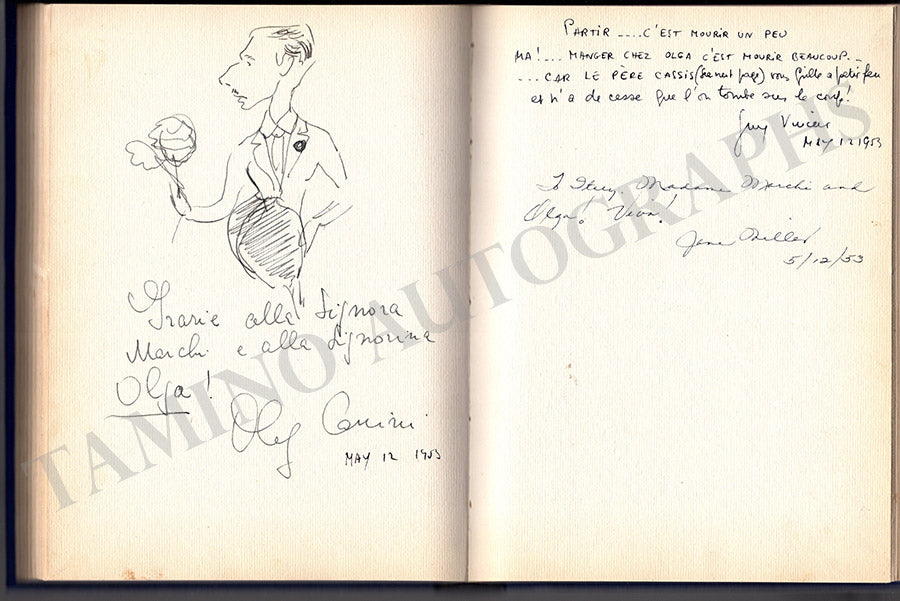 Grazie alla Signora
Marchi e alla Signorina
Olga!
Oleg Cassini
MAY 12 1953
PARTIR ....C'EST MOURIR UN PEU
MA!... MANGER CHEZ OLGA C'EST MOURIR BEAUCOUP...
...CAR LE PÈRE CASSIS (page) vous grille a petit feu
et n'a de cesse que l'on tombe sur le
Guy
MAY 12 1953
To Madame Marchi and
Olga. Viva!
Jane Miller
5/12/53
TAMINO AUTOGRAPHS